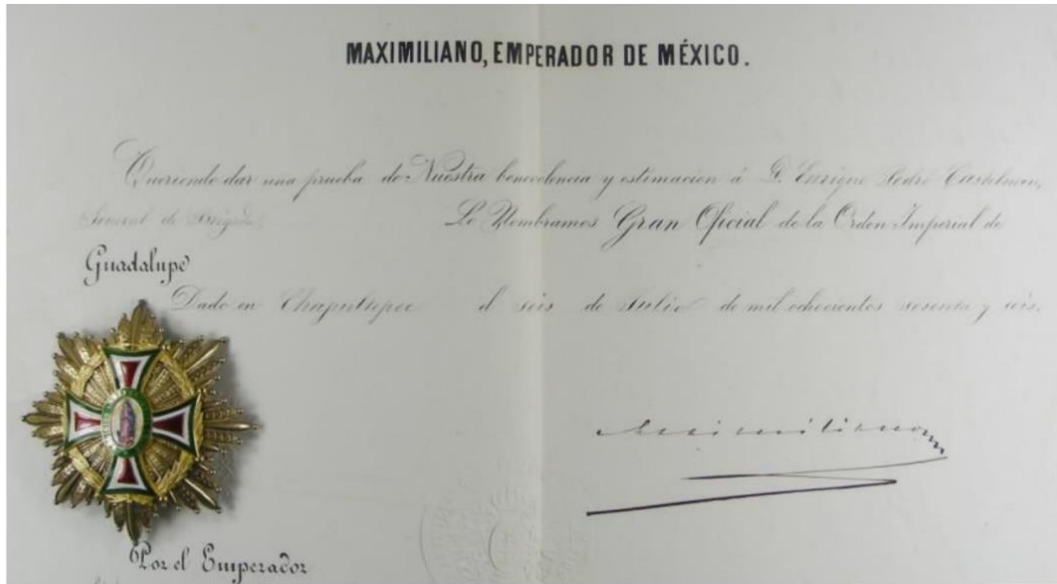 MAXIMILIANO, EMPERADOR DE MÉXICO.
Queriendo dar una prueba de Nuestra benevolencia y estimacion á D. Enrique Pedro Castelnau,
General de Brigada, Le Nombramos Gran Oficial de la Orden Imperial de
Guadalupe
Dado en Chapultepec el seis de Julio de mil ochocientos sesenta y seis.
Maximiliano
Por el Emperador